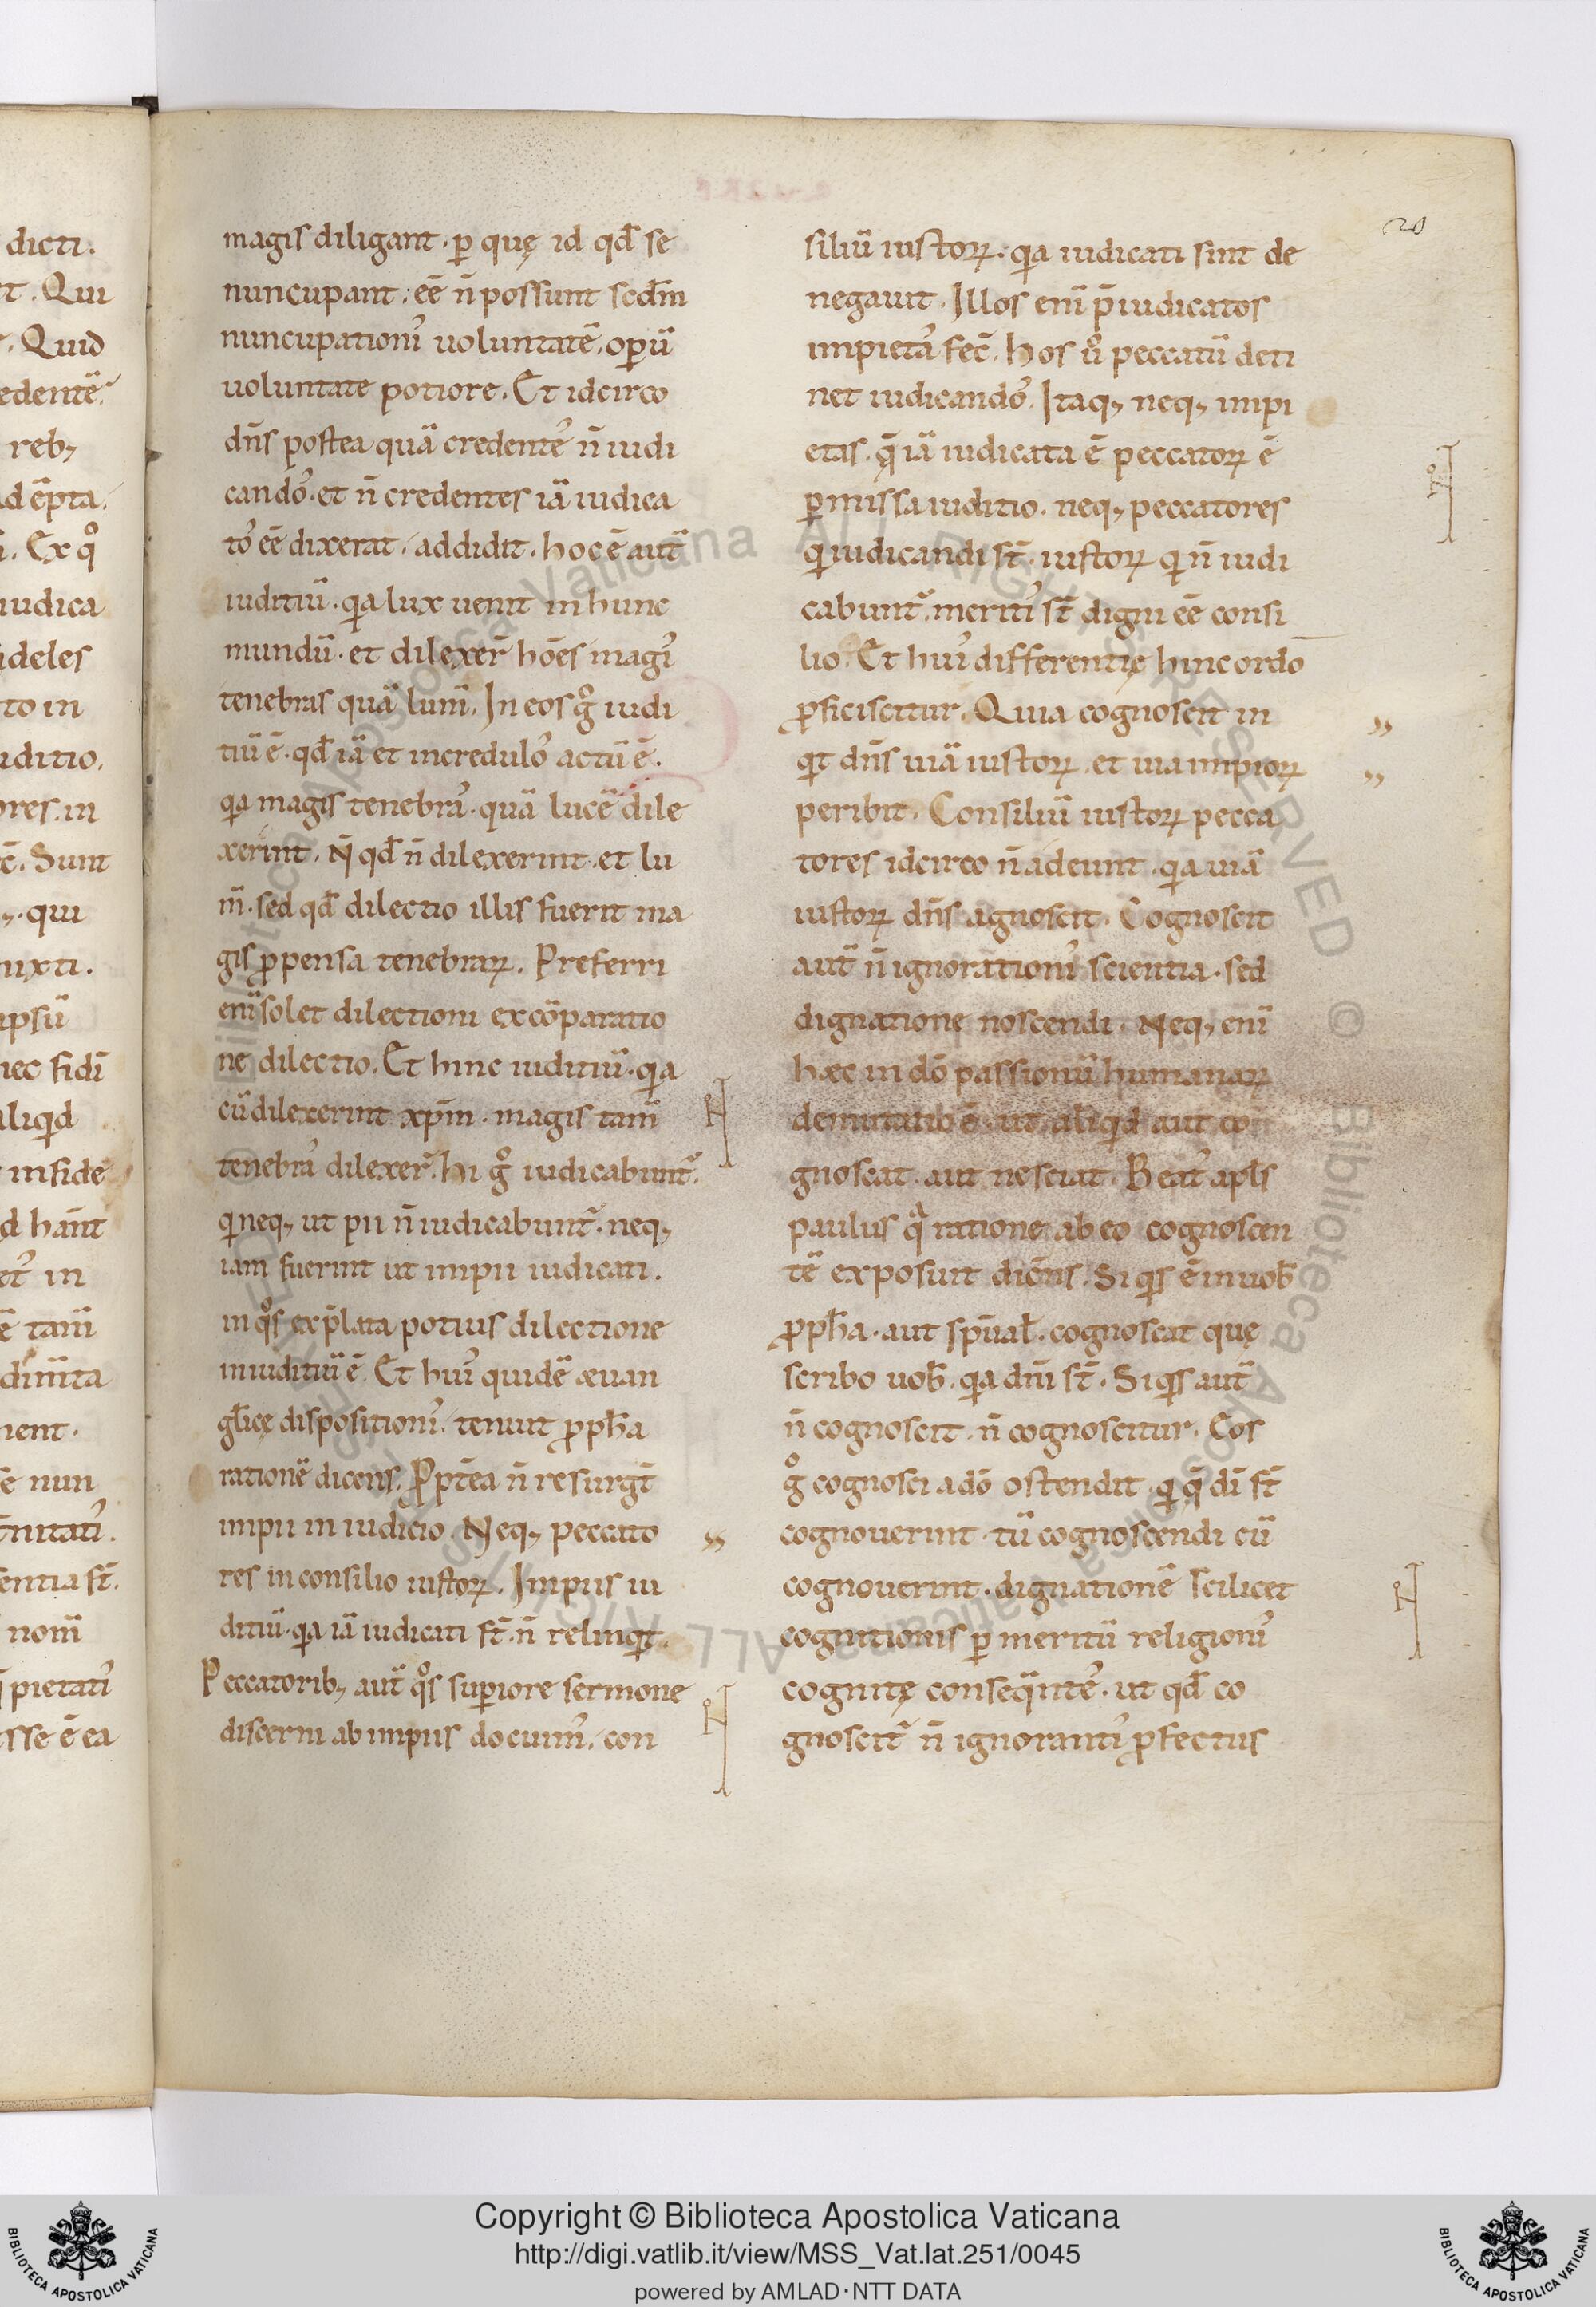 dicti.
t. Qui
. Quid
edentē.
reb;
d ēpta.
. Ex qͦ
iudica
ideles
to in
uditio.
ores. in
c̄. Sunt
; qui
uxti.
ipsū
nec fidī
aliqid
infide
d hn̄t
in
ē tam̄
dim̄ta
nent.
se nun
nitati᾽.
entia st̄.
nom̄
pietati᾽
sse ē ea
20
magis diligant. p̱ quę id qđ se
nuncupant; eē n̄ possunt scđm
nuncupationi᾽ uoluntatē. op̱ū
uoluntate potiore. Et idcirco
dn̄s postea quā credente᾽ n̄ iudi
cando᾽. et n̄ credentes iā iudica
to᾽ eē dixerat. addidit. hoc ē aut̄
iuditiū. qia lux uenit in hunc
mundū. et dilexer̄ hoēs magi᾽
tenebras quā lum̄. In eos gͦ iudi
tiū ē. qđ iā et incredulo᾽ actū ē.
qia magis tenebra᾽. quā lucē dile
xerint. N̄ qđ n̄ dilexerint. et lu
m̄. sed qđ dilectio illis fuerit ma
gis ꝓpensa tenebraꝝ. Preferri
enī solet dilectioni ex cōparatio
ne dilectio. Et hinc iuditiū. qia
cū dilexerint xp̄m. magis tam̄
tenebra᾽ dilexer̄. hi gͦ iudicabunt᾽.
qi neq; ut pii n̄ iudicabunt᾽. neq;
iam fuerint ut impii iudicati.
in qͦs ex p̄lata potius dilectione
in iuditiū ē. Et hui᾽ quidē æuan
gl̄icę dispositioni᾽. tenuit ꝓph̄a
rationē dicens. Ꝓpt̄ea n̄ resurgt̄
impii in iudicio. Neq; peccato
res in consilio iustoꝝ. Impiis iu
ditiū. qia iā iudicati st̄. n̄ relinqit.
Peccatorib; aut̄ qͦs sup̱iore sermone
discerni ab impiis docuim᾽. con
siliū iustoꝝ. qia iudicati sint de
negauit. Illos enī p̄iudicatos
impieta᾽ fec̄. hos uͦ peccatū deti
net iudicando᾽. Itaq; neq; impi
etas. q̄ iā iudicata ē peccatoꝝ ē
p̱missa iuditio. neq; peccatores
qi iudicandi st̄. iustoꝝ qi n̄ iudi
cabunt᾽. meriti᾽ st̄ digni eē consi
lio. Et hui᾽ differentię hinc ordo
ꝓficiscitur. Quia cognoscit in
qit dn̄s uiā iustoꝝ. et uia impioꝝ
peribit. Consiliū iustoꝝ pecca
tores idcirco n̄ adeunt. qia uiā
iustoꝝ dn̄s agnoscit. Cognoscit
aut̄ n̄ ignorationi᾽ scientia. sed
dignatione noscendi. Neq; enī
hæc in dō passionū humanaꝝ
demutatio ē. ut aliqid aut co
gnoscat. aut nesciat. Beat᾽ apl̄s
paulus qᵃ ratione ab eo cognoscen
tē exposuit dicēns. Si qis ē in uob̄
ꝓph̄a. aut sp̄ual̄. cognoscat quę
scribo uob̄. qia dn̄i st̄. Si qis aut̄
n̄ cognoscit. n̄ cognoscitur. Eos
gͦ cognosci a dō ostendit. qi q̄ dī st̄
cognouerint. tū cognoscendi cū
cognouerint. dignationē scilicet
cognitionis p̱ meritū religioni᾽
cognitę conseqᵃnte᾽. ut qđ co
gnoscit᾽ n̄ ignoranti᾽ ꝓfectus
Copyright © Biblioteca Apostolica Vaticana
http://digi.vatlib.it/view/MSS_Vat.lat.251/0045
powered by AMLAD·NTT DATA
BIBLIOTECA APOSTOLICA VATICANA
BIBLIOTECA APOSTOLICA VATICANA